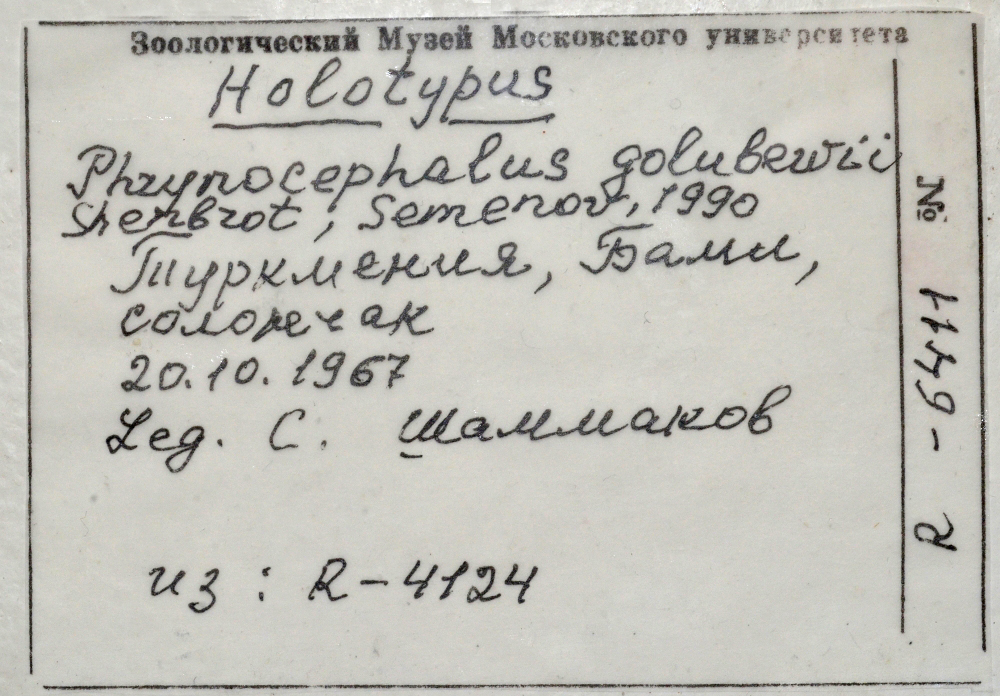 Зоологический Музей Московского университета
Holotypus
Phrynocephalus golubewii
Shenbrot, Semenov, 1990
Туркмения, Бами,
солончак
20.10.1967
Leg. С. Шаммаков
из: R-4124
№ R-6411